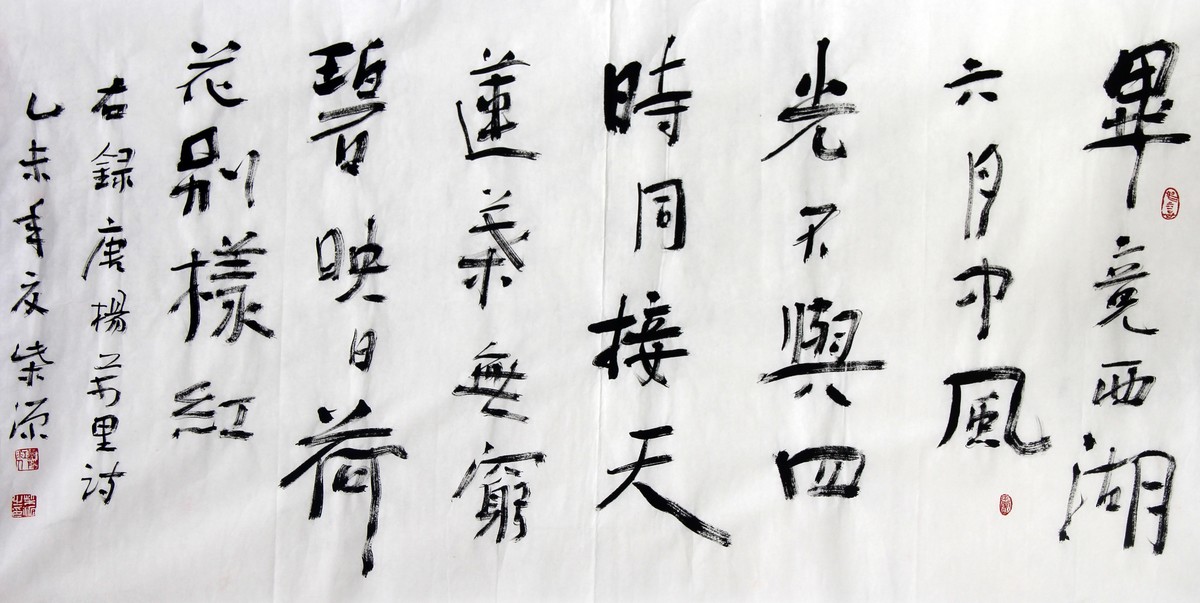 畢竟西湖
六月中風
光不與四
時同接天
蓮葉無窮
碧映日荷
花别樣紅
右録唐楊萬里詩
乙未年夏柴源